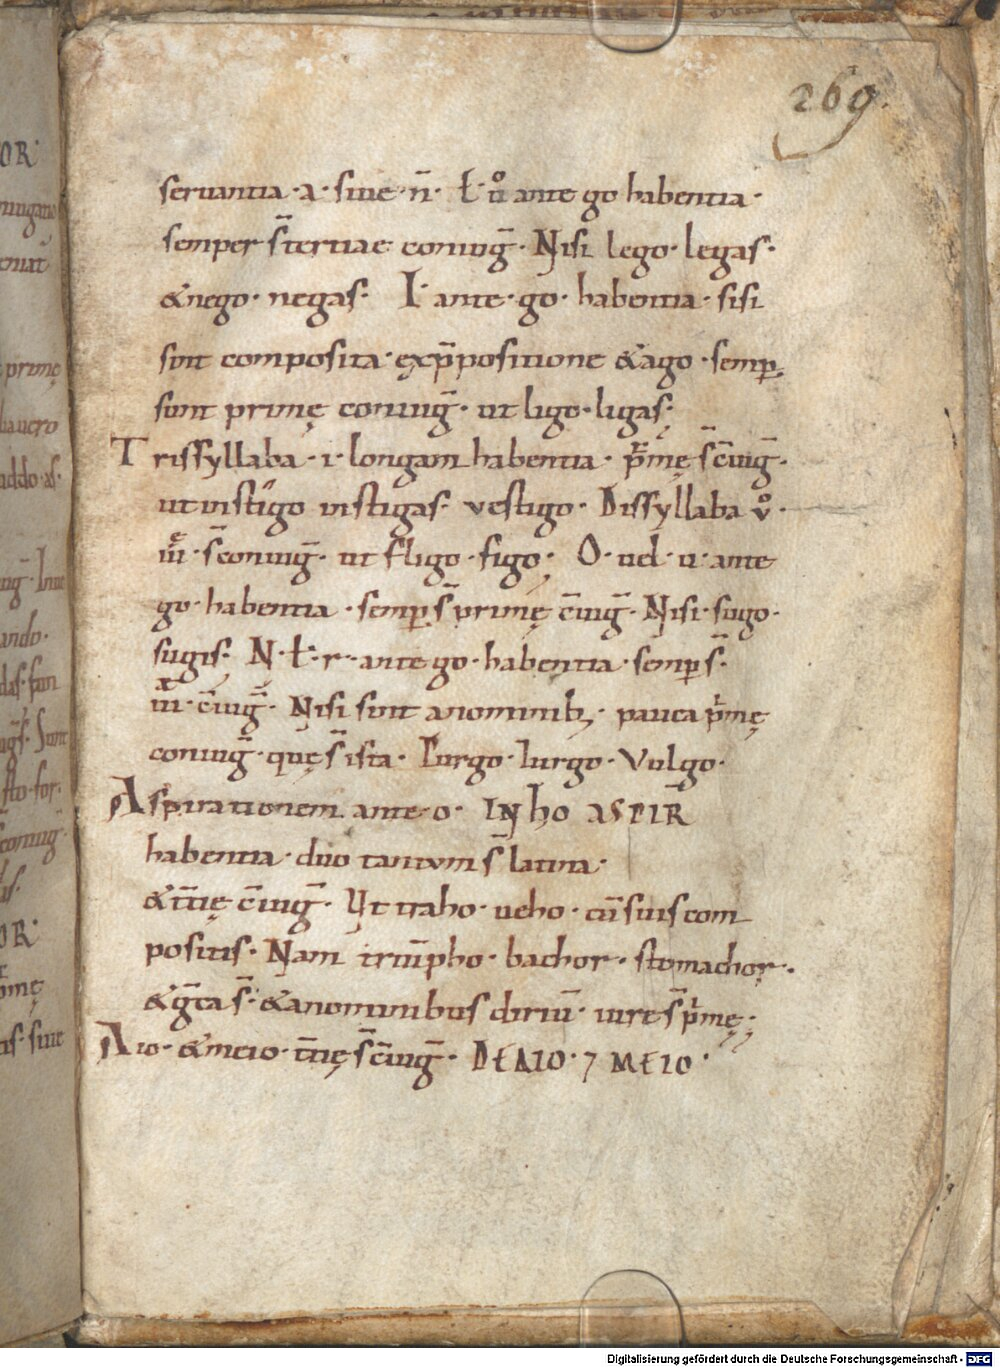 269.
seruantia · a · siue · n̄ · ł · uͦ ante go habentia ·
semper s̄ tertiae coniuḡ · Nisi lego · legas ·
& nego · negas · I · ante · go · habentia · si si
sint composita · ex p̄positione & ago · semp̲
sunt primę coniuḡ · ut ligo · ligas ·
Trissyllaba · i · longam habentia · p̄mę s̄ c̄iuḡ ·
ut instigo instigas · vestigo · Dissyllaba vͦ ·
iii · s̄ coniuḡ · ut fligo · figo · O · uel · u · ante
go · habentia · semp̲ s̄ primę c̄iuḡ · Nisi · sugo ·
sugis · N · ł · r · ante go · habentia · semp̲ s̄ ·
iii · c̄iuḡ · Nisi sint a nominib; · pauca p̄mę
coniuḡ · quę s̄ ista · Purgo · Iurgo · Vulgo ·
Aspirationem ante · o · IN HO ASPIR̄
habentia · duo tantum s̄ latina ·
& t̄tię c̄iuḡ · Ut traho · ueho · cū suis com
positis · Nam triūpho · bachor · stomachor ·
& ḡca s̄ · & a nominibus diriū · iure s̄ p̄mę ·
Aio · & meio · t̄tię s̄ c̄iuḡ · DE AIO · 7 MEIO ·
OR
primę
ando ·
Digitalisierung gefördert durch die Deutsche Forschungsgemeinschaft - DFG